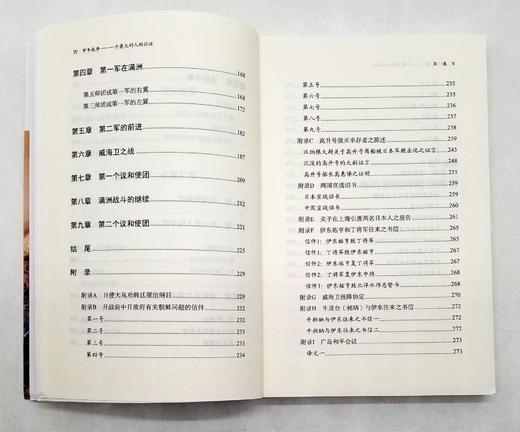 IV 甲午战争——一个意大利人的记述
第四章 第一军在满洲 168
第五师团或第一军的右翼 168
第三师团或第一军的左翼 175
第五章 第二军的前进 182
第六章 威海卫之战 187
第七章 第一个议和使团 209
第八章 满洲战斗的继续 209
第九章 第二个议和使团
结 尾
附 录 229
附录A 日使大鸟劝韩廷厘治纲目 229
附录B 开战前中日政府有关朝鲜问题的信件 232
第一号 232
第二号 233
第三号
第四号 234
目 录 V
第五号 235
第六号 235
第七号
第八号
第九号
附录C 高升号毁灭幸存者之陈述
汉纳根大尉关于高升号商船被日本军舰击沉之证言
沉没的高升号的大副证言
高升号船长高惠悌之证明
附录D 两国宣战诏书
日本宣战诏书
中国宣战诏书
附录E 关于在上海引渡两名日本人之报告 261
附录F 伊东祐亨和丁将军往来之书信
信件1: 伊东祐亨致丁将军
信件1: 丁将军致伊东祐亨
信件2: 伊东祐亨复丁将军
信件2: 丁将军复伊东中将
信件3: 伊东祐亨致北洋水师总督书
附录G 威海卫投降协定
附录H 牛道台（昶昞）与伊东往来之书信
牛昶昞与伊东往来之书信一
牛昶昞与伊东往来之书信二
附录I 广岛和平会议 273
译文一 273